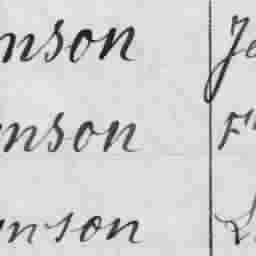 nson Je
nson F
nson L